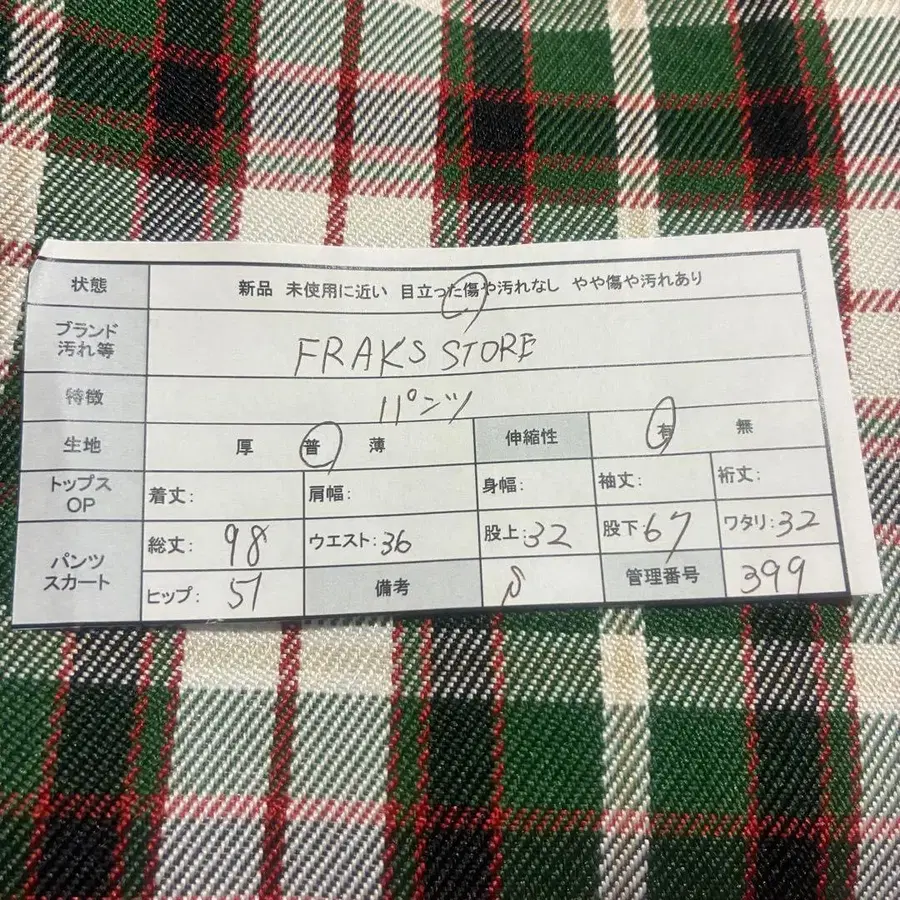 状態 新品 未使用に近い 目立った傷や汚れなし やや傷や汚れあり
ブランド
汚れ等
FRAKS STORE
特徴 パンツ
生地 厚 普 薄 伸縮性 有 無
トップス
OP
着丈: 肩幅: 身幅: 袖丈: 裄丈:
パンツ
スカート
総丈: 98 ウエスト:36 股上:32 股下:67 ワタリ:32
ヒップ: 51 備考 管理番号 399